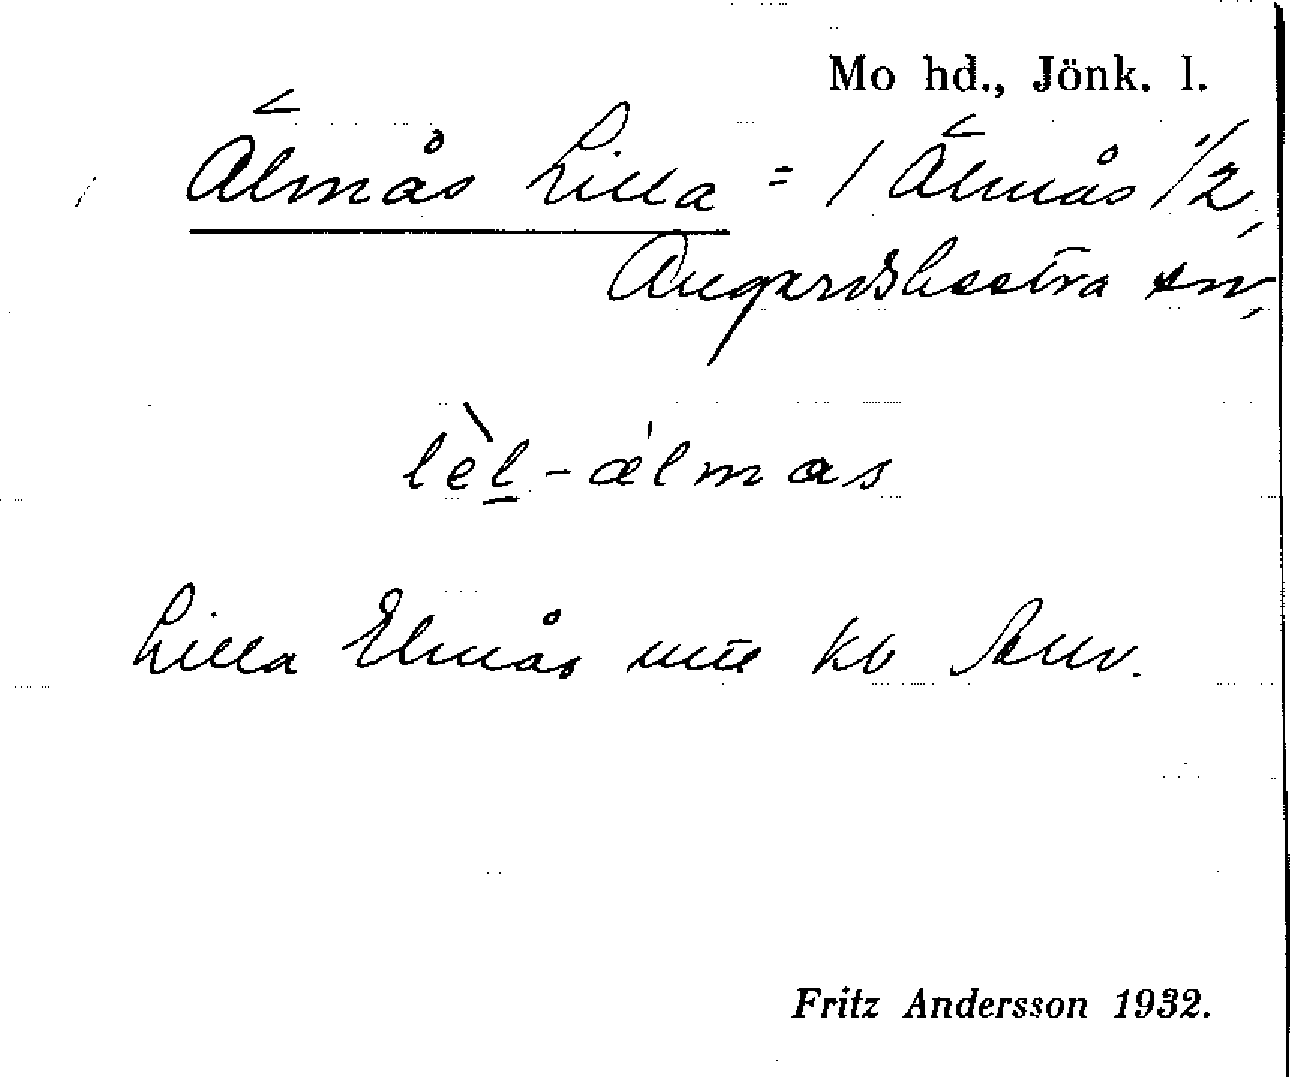 Mo hd., Jönk. l.
Älmås Lilla = / Älmås 1/2,
Angerdshestra sn,
lèl-älmas
Lilla Elmås
Fritz Andersson 1932.